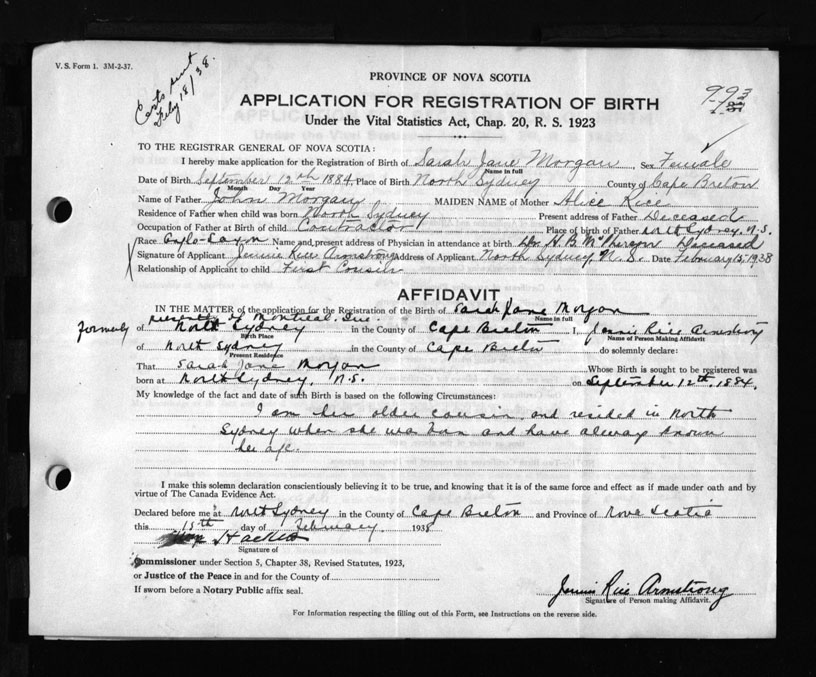 V. S. Form 1. 3M-2-37.
Certs sent
Feby 18/38.
PROVINCE OF NOVA SCOTIA
993
APPLICATION FOR REGISTRATION OF BIRTH
Under the Vital Statistics Act, Chap. 20, R. S. 1923
TO THE REGISTRAR GENERAL OF NOVA SCOTIA:
I hereby make application for the Registration of Birth of Sarah Jane Morgan, Sex Female
Name in full
Date of Birth September 12th 1884, Place of Birth North Sydney County of Cape Breton
Month Day Year
Name of Father John Morgan MAIDEN NAME of Mother Alice Rice
Residence of Father when child was born North Sydney Present address of Father Deceased
Occupation of Father at Birth of child Contractor Place of birth of Father North Sydney, N.S.
Race Name and present address of Physician in attendance at birth Dr. H. B. Deceased
Signature of Applicant Jennie Rice Armstrong Address of Applicant North Sydney, N. S. Date February 15, 1938
Relationship of Applicant to child First Cousin
AFFIDAVIT
IN THE MATTER of the application for the Registration of the Birth of Sarah Jane Morgan
Name in full
presently of Montreal, Que.
Formerly of North Sydney in the County of Cape Breton I, Jennie Rice Armstrong
Birth Place Name of Person Making Affidavit
of North Sydney in the County of Cape Breton do solemnly declare:
Present Residence
That Sarah Jane Morgan Whose Birth is sought to be registered was
born at North Sydney, N.S. on September 12th, 1884.
My knowledge of the fact and date of such Birth is based on the following Circumstances:
I am her older cousin and resided in North
Sydney when she was born and have always known
her age.
I make this solemn declaration conscientiously believing it to be true, and knowing that it is of the same force and effect as if made under oath and by
virtue of The Canada Evidence Act.
Declared before me at North Sydney in the County of Cape Breton and Province of Nova Scotia
this 15th day of February 1938
Signature of
Commissioner under Section 5, Chapter 38, Revised Statutes, 1923,
or Justice of the Peace in and for the County of
If sworn before a Notary Public affix seal.
Jennie Rice Armstrong
Signature of Person making Affidavit.
For Information respecting the filling out of this Form, see Instructions on the reverse side.